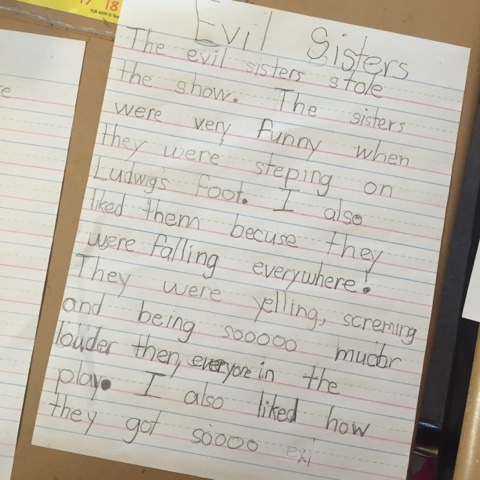 18
e
Evil Sisters
The evil sisters stole
the show. The sisters
were very funny when
they were steping on
Ludwigs foot. I also
liked them becuse they
were falling everywhere!
They were yelling, screming
and being sooooo
louder then everyone in the
play. I also liked how
they got soooo exi